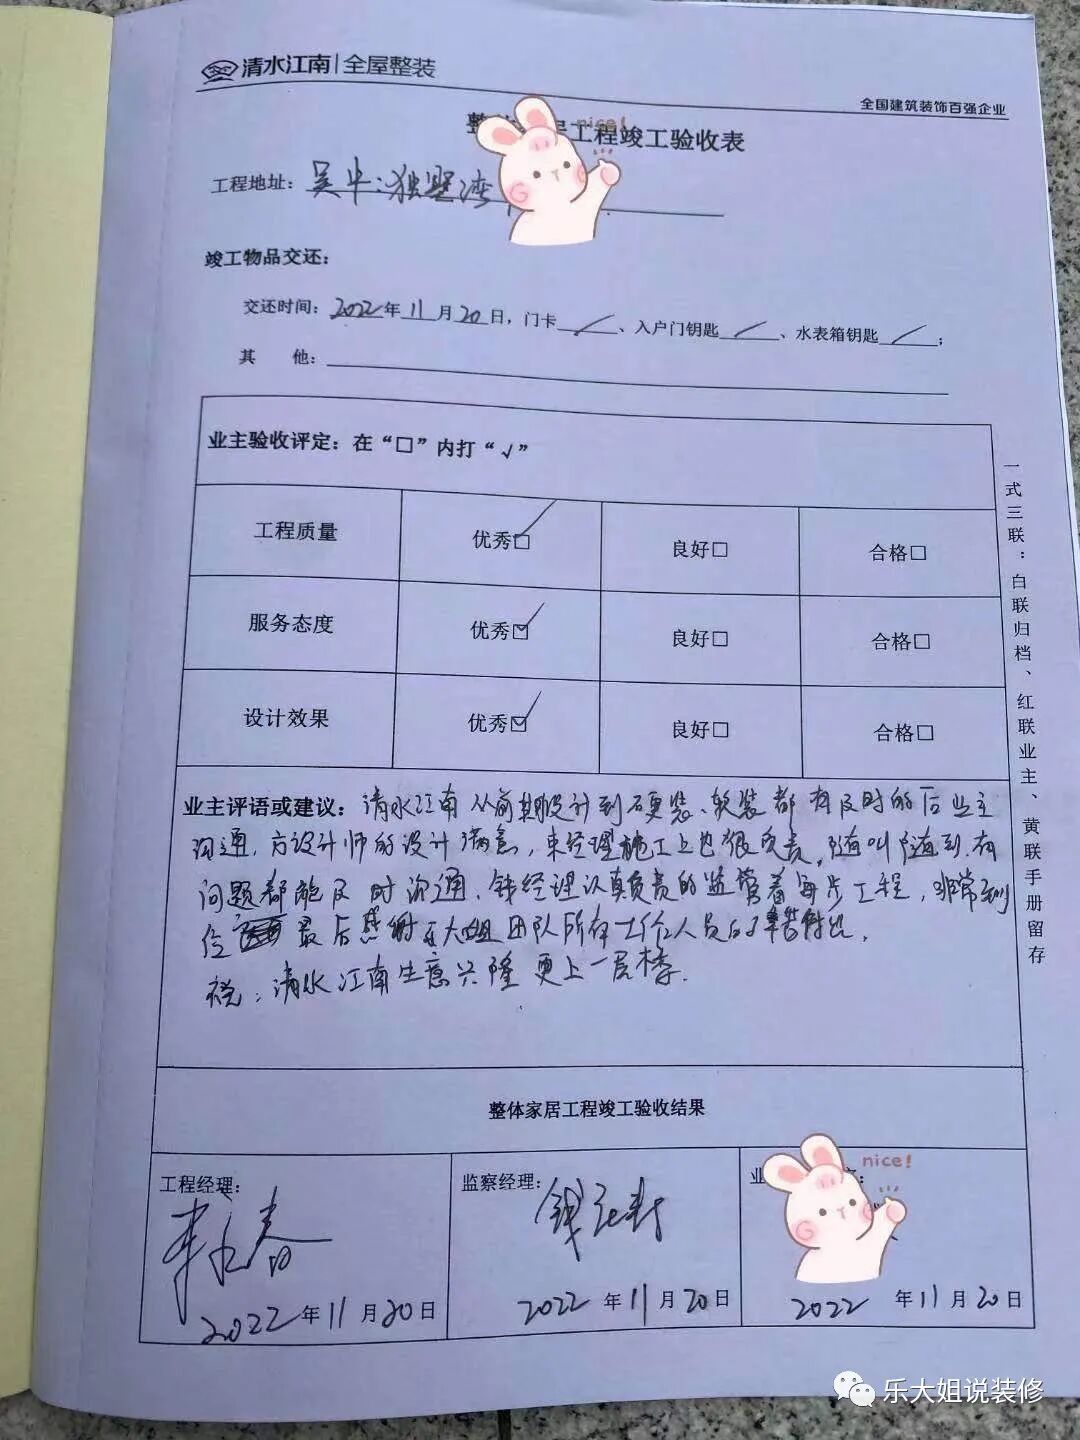 清水江南|全屋整装
全国建筑装饰百强企业
整 居工程竣工验收表
nice!
工程地址：吴中：独墅湾
竣工物品交还：
交还时间：2022年11月20日，门卡／、入户门钥匙／、水表箱钥匙／；
其 他：
业主验收评定：在“□”内打“√”
工程质量 优秀☑ 良好□ 合格□
服务态度 优秀☑ 良好□ 合格□
设计效果 优秀☑ 良好□ 合格□
业主评语或建议：清水江南从前期设计到硬装、软装都有及时的与业主
沟通，方设计师的设计满意，来经理施工上也很负责，随叫随到，有
问题都能及时沟通，钱经理认真负责的监管着每步工程，非常到
位 最后感谢 大姐团队所有工作人员的辛苦付出，
祝：清水江南生意兴隆更上一层楼.
整体家居工程竣工验收结果
工程经理：
2022年11月20日
监察经理：
2022年11月20日
业
nice!
2022年11月20日
一式三联：白联归档、红联业主、黄联手册留存
乐大姐说装修